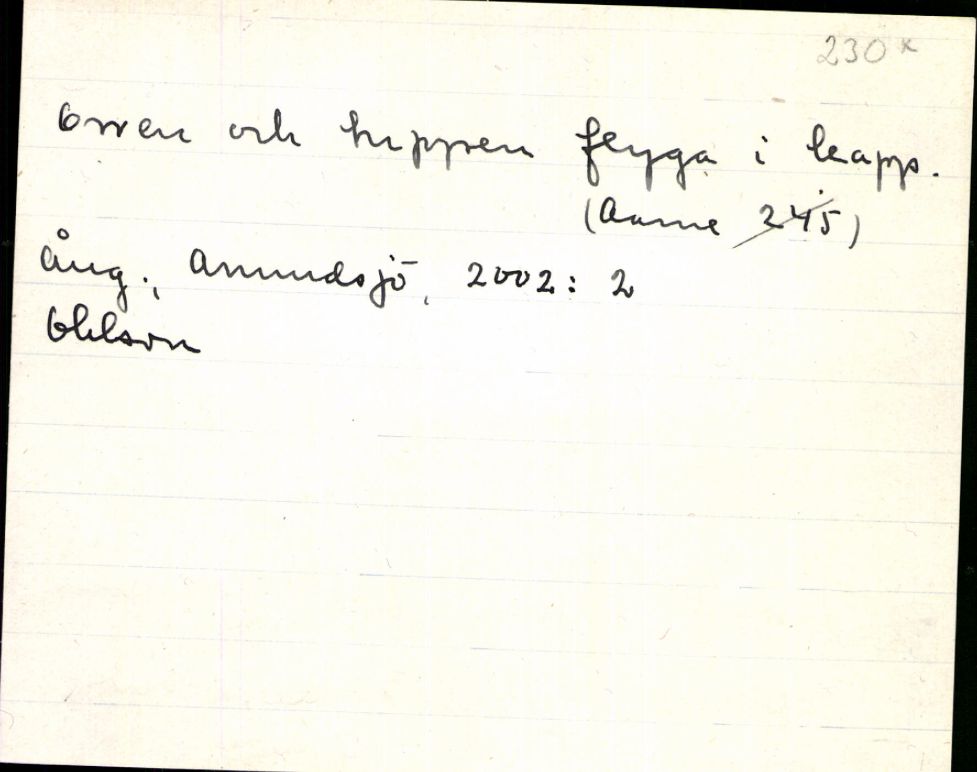 230*
Orren och tuppen flyga i kapp.
(Aarne 245)
Ång., Anundsjö, 2002: 2
Ohlson